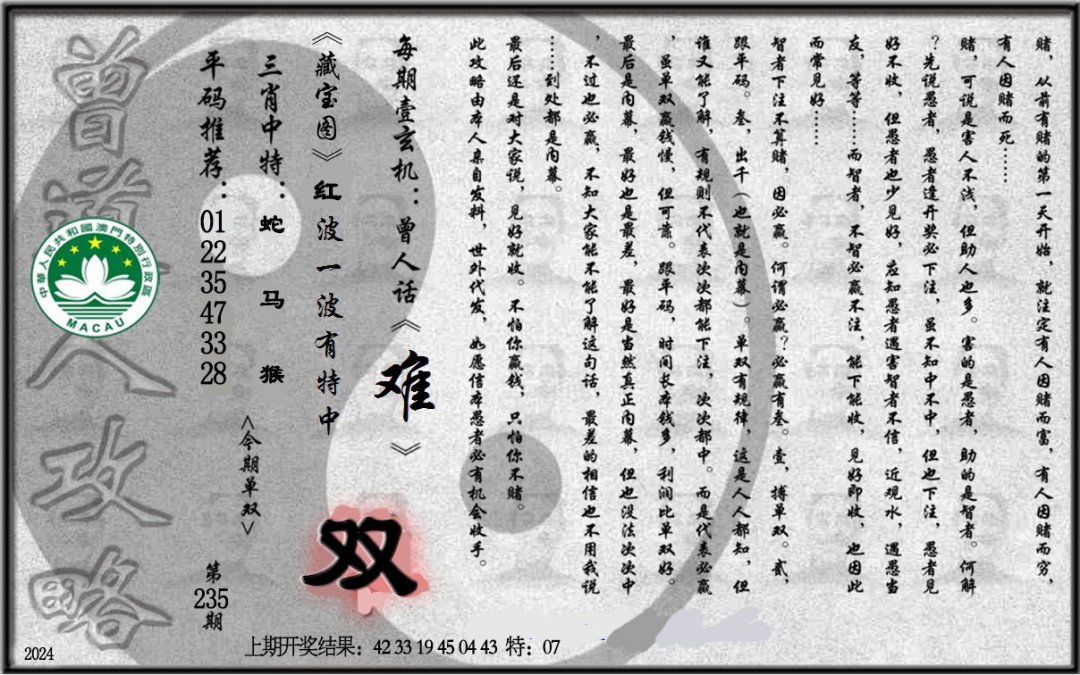 赌，从前有赌的第一天开始，就注定有人因赌而富，有人因赌而穷，
有人因赌而死……
赌，可说是害人不浅，但助人也多。害的是愚者，助的是智者。何解
？先说愚者，愚者逢开奖必下注，虽不知中不中，但也下注，愚者见
好不收，但愚者也少见好，应知愚者遇害智者不信，近观水，遇愚当
友，等等……而智者，不智必赢不注，能下能收，见好即收，也因此
而常见好……
智者下注不算赌，因必赢。何谓必赢？必赢有叁。壹，搏单双。贰，
跟平码。叁，出千（也就是内幕）。单双有规律，这是人人都知，但
谁又能了解，有规则不代表次次都能下注，次次都中。而是代表必赢
，虽单双赢钱慢，但可靠。跟平码，时间长本钱多，利润比单双好。
最后是内幕，最好也是最差，最好是当然真正内幕，但也没法次次中
，不过也必赢，不知大家能不能了解这句话，最差的相信也不用我说
……到处都是内幕。
最后还是对大家说，见好就收。不怕你赢钱，只怕你不赌。
此攻略由本人亲自发料，世外代发，如愿信本愚者必有机会收手。
每期壹玄机：曾人话《难》
《藏宝图》红波一波有特中
三肖中特：蛇 马 猴
平码推荐：01 22 35 47 33 28
<今期单双>
双
第235期
曾道人攻略
中華人民共和國澳門特別行政區
MACAU
上期开奖结果：42 33 19 45 04 43 特：07
2024